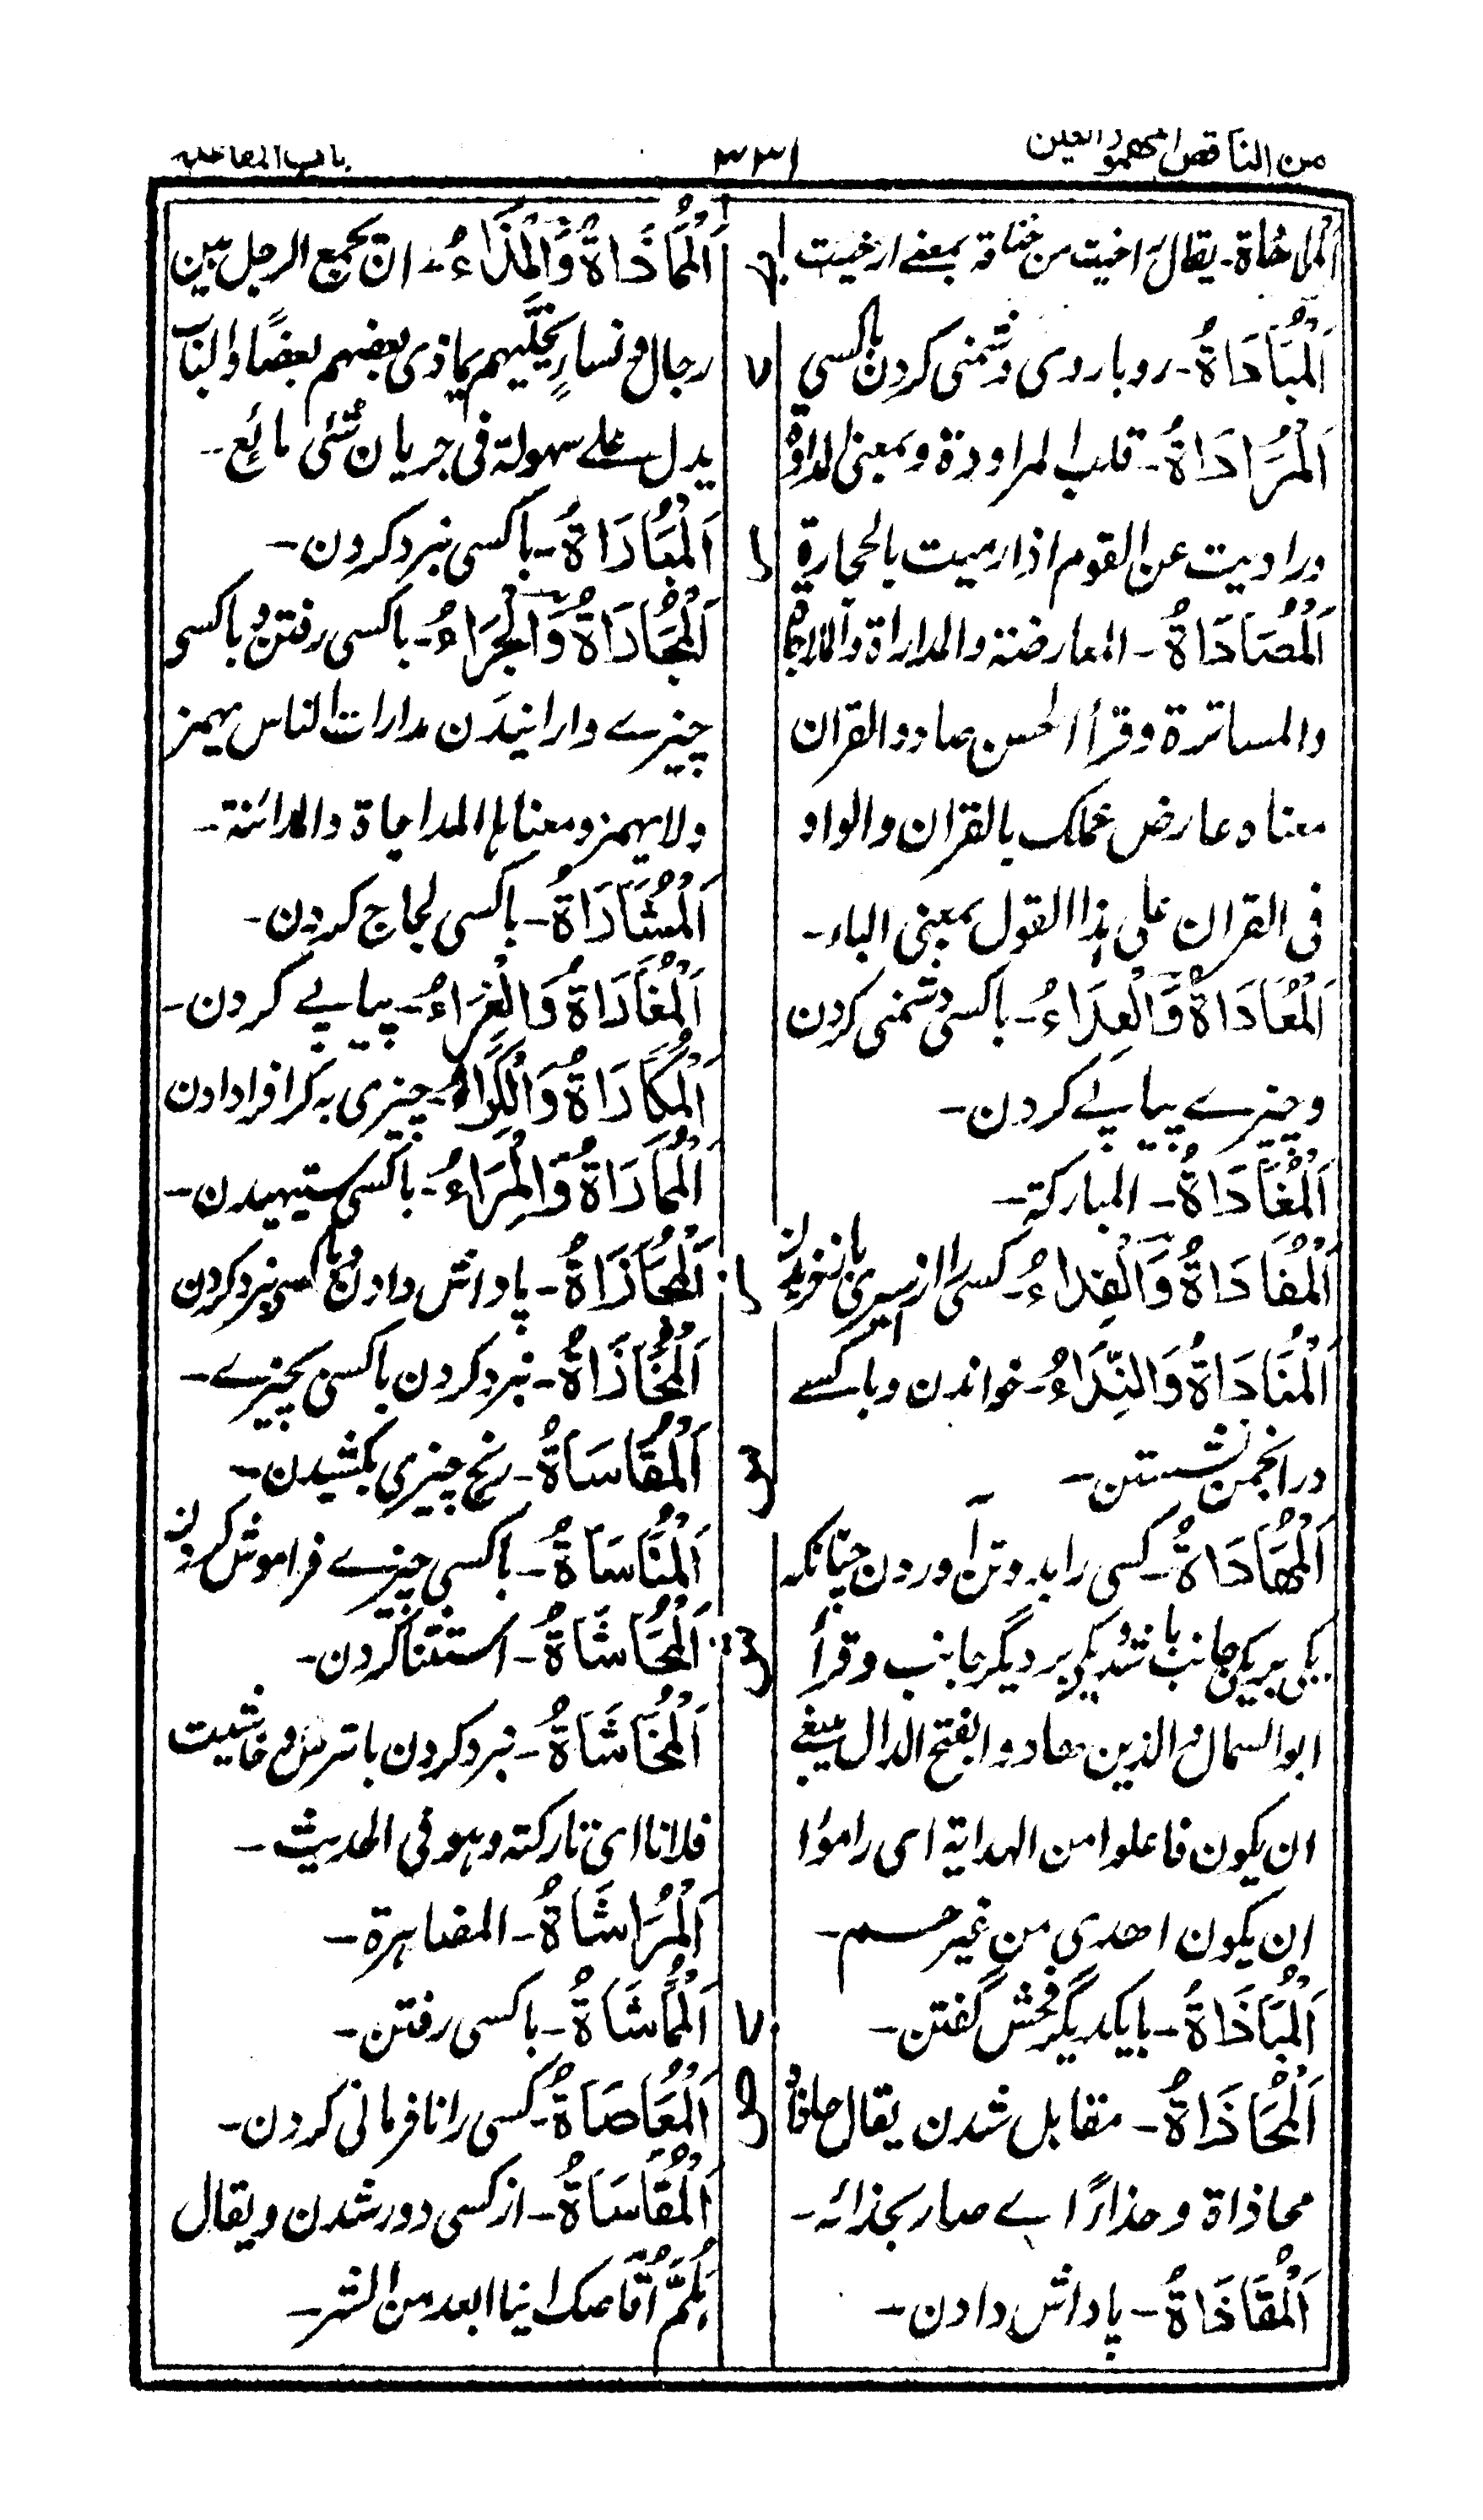 من الناقص المهموز العين
٣٣١
باب المفاعلة
اَلْمُلَاخَاةُ۔ يقال راخيت من خناقه بمعنے ارخيت
اَلْمُبَادَاةُ۔ روباروی دشمنی کردن باکسی
اَلْمُرَادَاةُ۔ قلب المراودة وبمعنی المداراة
وراديت عن القوم اذا رميت بالحجارة
اَلْمُصَادَاةُ۔ المعارضة والمداراة والمداجاة
والمساترة وقرأ الحسن صاد والقران
معناه عارض عملک بالقران والواو
فی القران علی هذا القول بمعنی الباء۔
اَلْمُعَادَاةُ وَالْعِدَاءُ۔ باکسی دشمنی کردن
وچیزے پیاپے کردن۔
اَلْمُغَادَاةُ۔ المباكرة۔
اَلْمُفَادَاةُ وَالْفِدَاءُ۔ کسی را از اسیری باز خریدن
اَلْمُنَادَاةُ وَالنِّدَاءُ۔ خواندن وباکسے
در انجمن نشستن۔
اَلْمُهَادَاةُ۔ کسی را بدو تن آوردن چنانکه
یکی بر یکی جانب باشد ویکی بر دیگر جانب وقرأ
ابو السمال والذين هادوا بفتح الدال ينبغے
ان يكون فاعلوا من الهداية ای راموا
ان يكون اهدی من غيرهم۔
اَلْمُبَاذَاةُ۔ بایکدیگر فحش گفتن۔
اَلْمُحَاذَاةُ۔ مقابل شدن يقال حاذاه
محاذاة وحذاءً اے صار بحذائه۔
اَلْمُقَاذَاةُ۔ پاداش دادن۔
ل
ی
ر
ز
س
ش
ص
اَلْمُمَاذَاةُ وَالْمِذَاءُ۔ ان يجمع الرجل بين
رجال ونساءٍ يخلّيهم يماذی بعضهم بعضًا والبناء
يدل علے سهولة فی جريان شئی مائع۔
اَلْمُبَارَاةُ۔ باکسی نبرد کردن۔
اَلْمُجَارَاةُ وَالْجِرَاءُ۔ باکسی رفتن وباکسی
چیزے وارانیدن مدارات الناس يهمز
ولا يهمز ومعناها المداجاة والملائنة۔
اَلْمُشَارَاةُ۔ باکسی لجاج کردن۔
اَلْمُغَارَاةُ وَالْغِرَاءُ۔ پیاپے کردن۔
اَلْمُكَارَاةُ وَالْكِرَاءُ۔ چیزی به کرا فرا دادن
اَلْمُمَارَاةُ وَالْمِرَاءُ۔ باکسی ستیهیدن۔
اَلْمُجَازَاةُ۔ پاداش دادن وباکسی نبرد کردن
اَلْمُخَازَاةُ۔ نبرد کردن باکسی بچیزے۔
اَلْمُقَاسَاةُ۔ رنج چیزی بکشیدن۔
اَلْمُنَاسَاةُ۔ باکسی چیزے فراموش کردن
اَلْمُحَاشَاةُ۔ استثنا کردن۔
اَلْمُخَاشَاةُ۔ نبرد کردن باترس وخاشيت
فلانا ای تارکته وهو فی الحديث۔
اَلْمُرَاشَاةُ۔ المظاهرة۔
اَلْمُمَاشَاةُ۔ باکسی رفتن۔
اَلْمُعَاصَاةُ۔ کسی را نافرمانی کردن۔
اَلْمُقَاصَاةُ۔ از کسی دور شدن ويقال
هَلُمَّ اُقَاصِك اينا ابعد من الشر۔